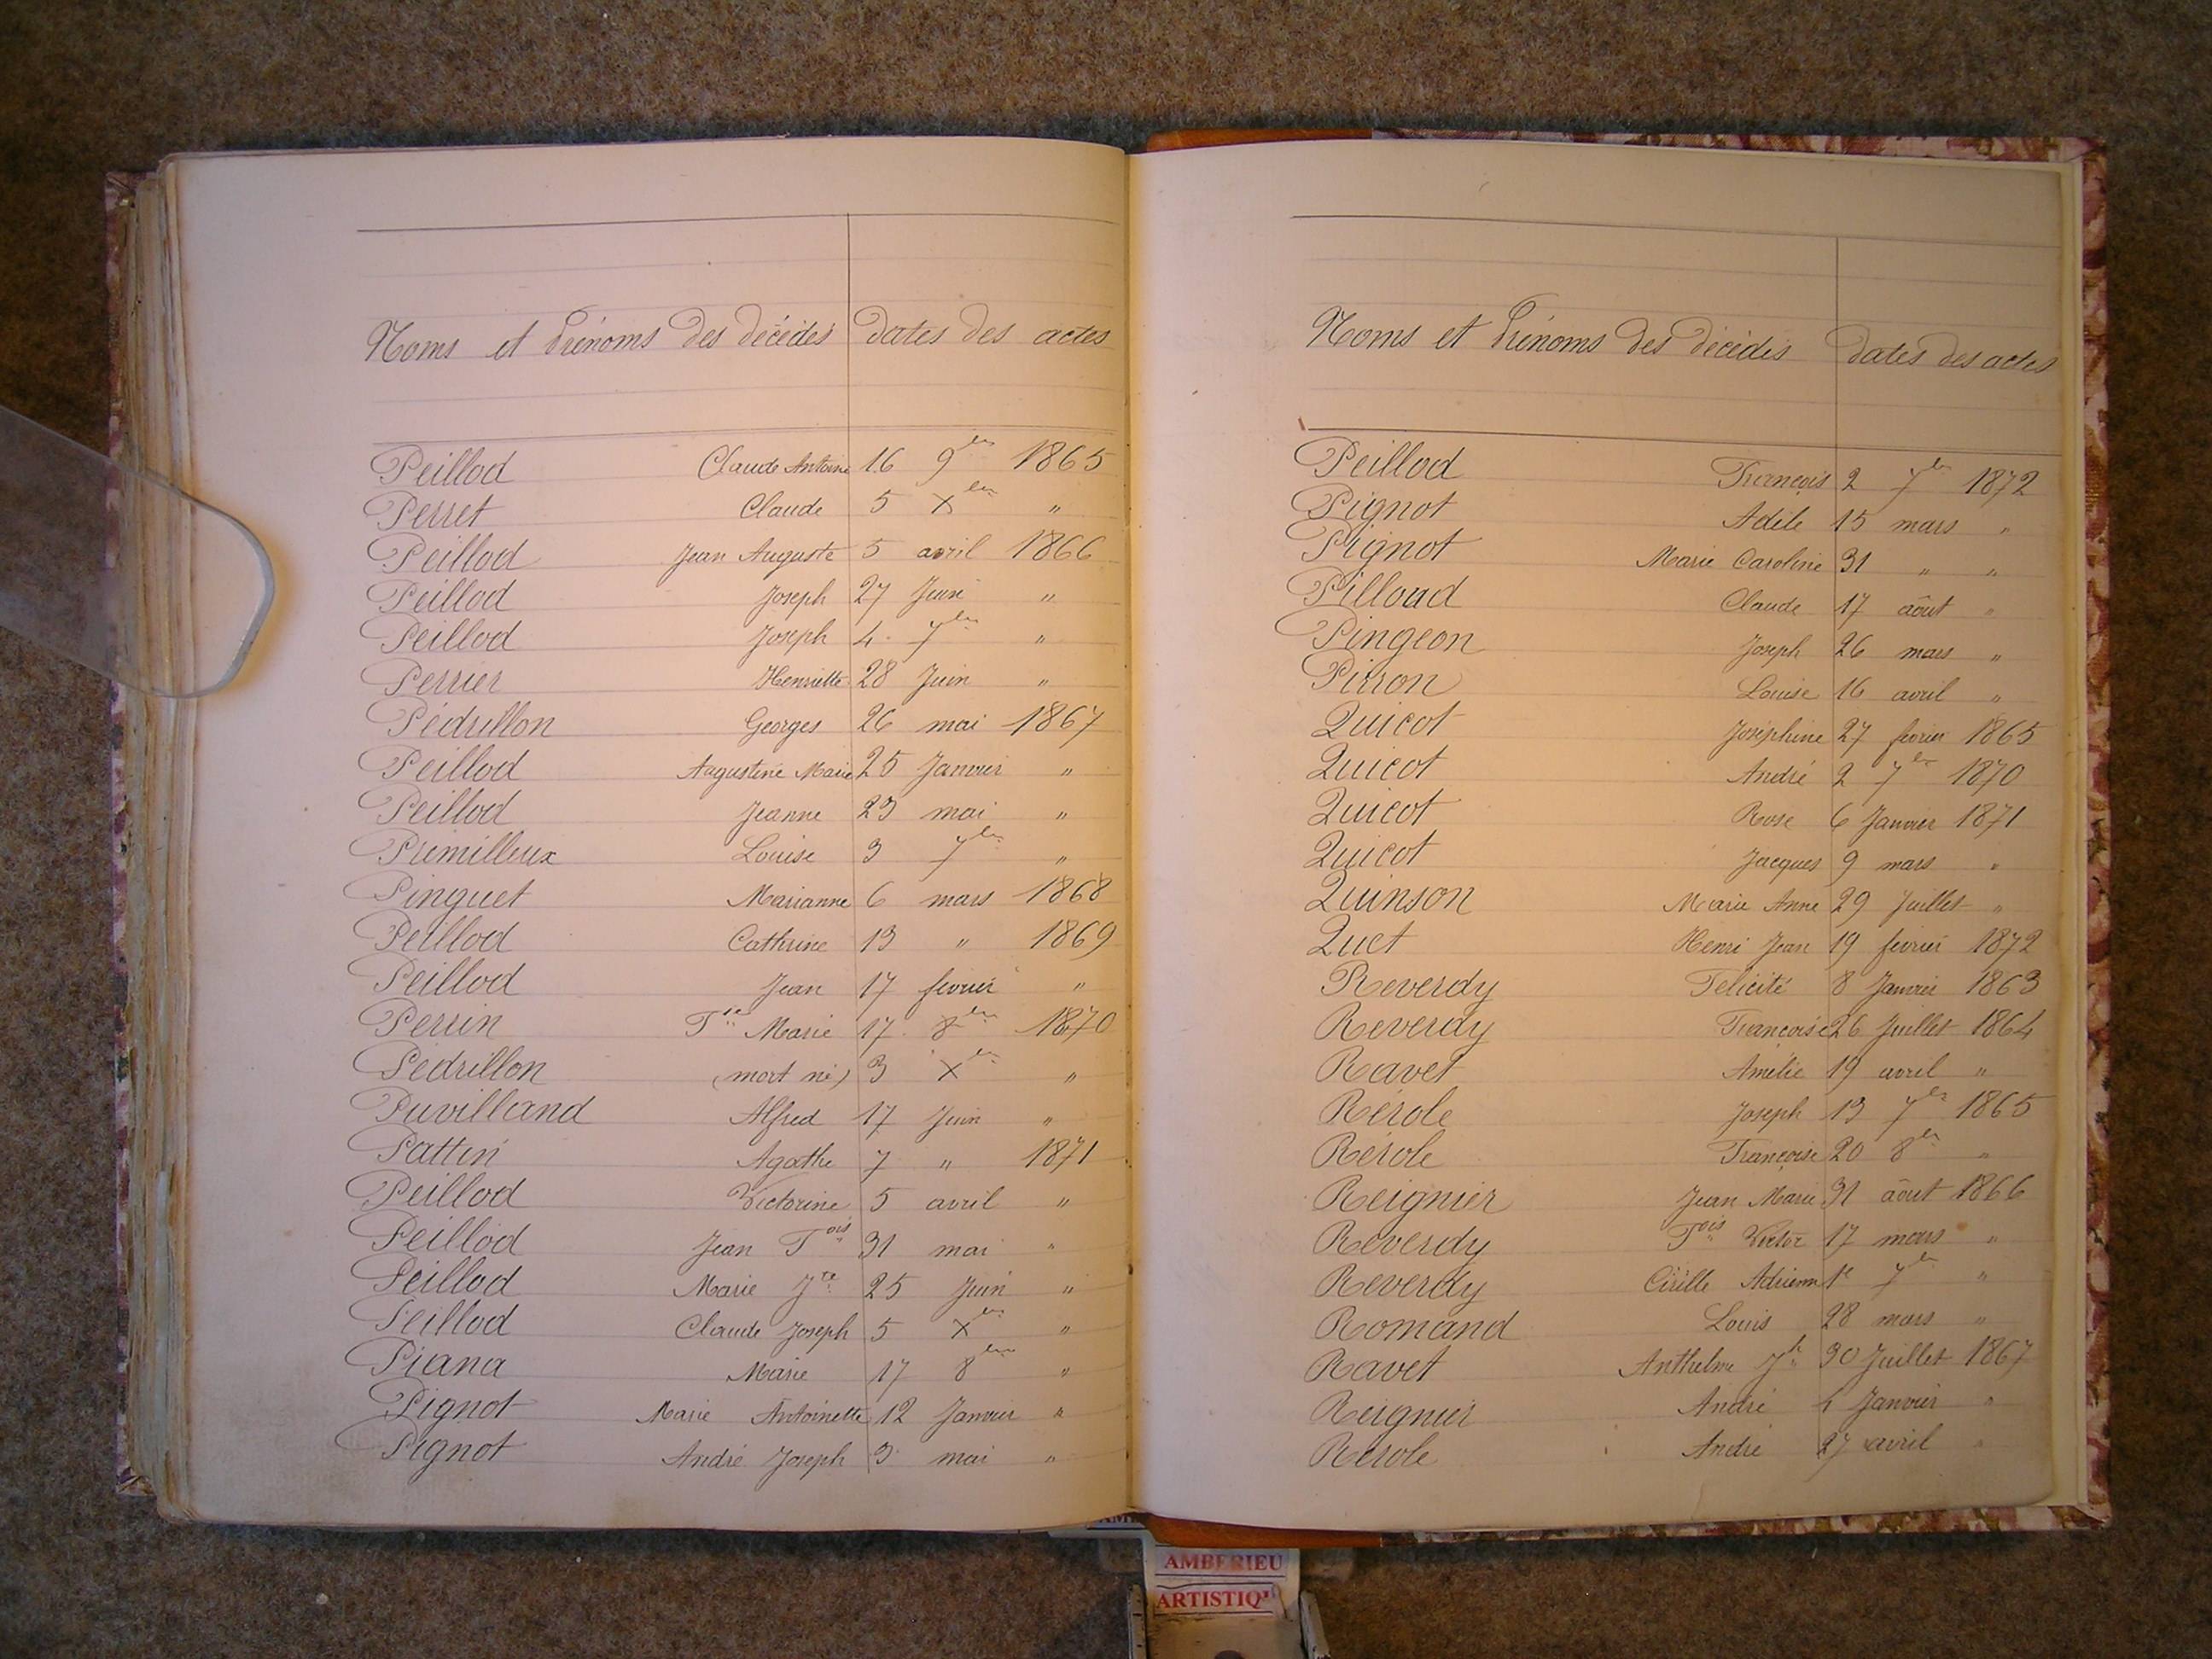 Noms et Prénoms des décédés dates des actes
Peillod Claude Antoine 16 9bre 1865
Perret Claude 5 Xbre "
Peillod Jean Auguste 5 avril 1866
Peillod Joseph 27 Juin "
Peillod Joseph 4 7bre "
Perrier Henriette 28 Juin "
Pédrillon Georges 26 mai 1867
Peillod Augustine Marie 25 Janvier "
Peillod Jeanne 23 mai "
Premilleux Louise 3 7bre "
Pinguet Marianne 6 mars 1868
Peillod Cathrine 13 " 1869
Peillod Jean 17 fevrier "
Perrin Fse Marie 17 8bre 1870
Pédrillon (mort né) 3 Xbre "
Puvilland Alfred 17 Juin "
Pattin Agathe 7 " 1871
Peillod Victorine 5 avril "
Peillod Jean Fois 31 mai "
Peillod Marie Jte 25 Juin "
Peillod Claude Joseph 5 Xbre "
Piana Marie 17 8bre "
Pignot Marie Antoinette 12 Janvier "
Pignot André Joseph 3 mai "
Noms et Prénoms des décédés dates des actes
Peillod François 2 7bre 1872
Pignot Adèle 15 mars "
Pignot Marie Caroline 31 " "
Pilloud Claude 17 aôut "
Pingeon Joseph 26 mars "
Piron Louise 16 avril "
Quicot Joséphine 27 fevrier 1865
Quicot André 2 7bre 1870
Quicot Rose 6 Janvier 1871
Quicot Jacques 9 mars "
Quinson Marie Anne 29 Juillet "
Quet Henri Jean 19 fevrier 1872
Reverdy Felicité 8 Janvier 1863
Reverdy Françoise 26 Juillet 1864
Ravet Amélie 19 avril "
Rérole Joseph 13 7bre 1865
Rérole Françoise 20 8bre "
Reignier Jean Marie 31 aôut 1866
Reverdy Fois Victor 17 mars "
Reverdy Cirille Adrienne 1e 7bre "
Romand Louis 28 mars "
Ravet Anthelme Jh 30 Juillet 1867
Reignier André 4 Janvier "
Rérole André 27 avril "
AMBERIEU
ARTISTIQ